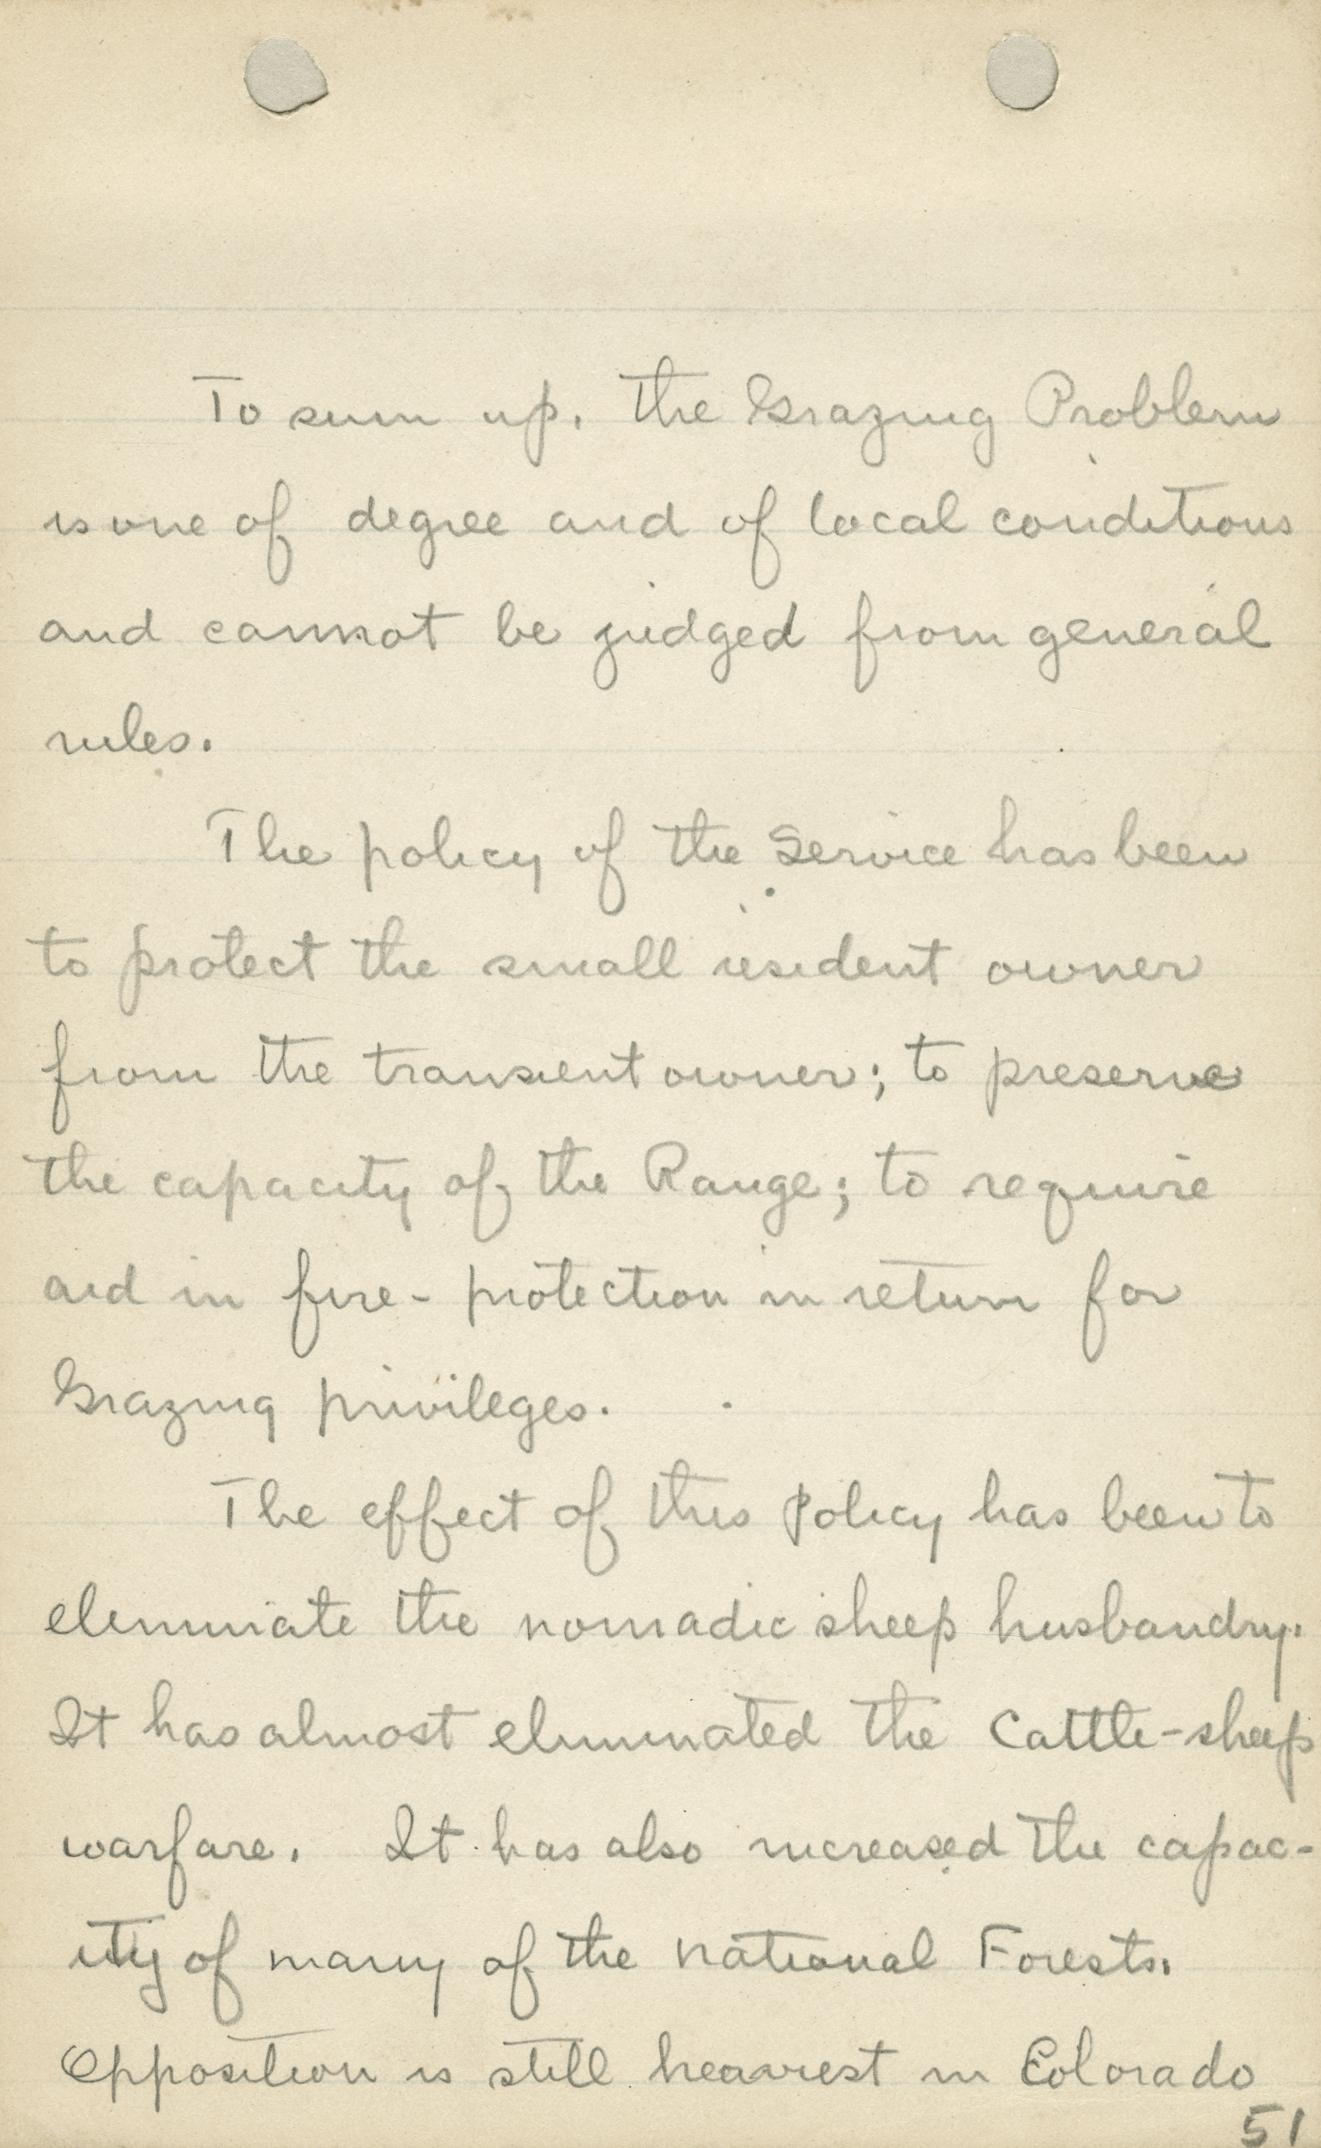 To sum up, the Grazing Problem
is one of degree and of local conditions
and cannot be judged from general
rules.
The policy of the Service has been
to protect the small resident owner
from the transient owner; to preserve
the capacity of the Range; to require
aid in fire-protection in return for
Grazing privileges.
The effect of this Policy has been to
eliminate the nomadic sheep husbandry.
It has almost eliminated the Cattle-sheep
warfare. It has also increased the capac-
ity of many of the National Forests.
Opposition is still heaviest in Colorado
51